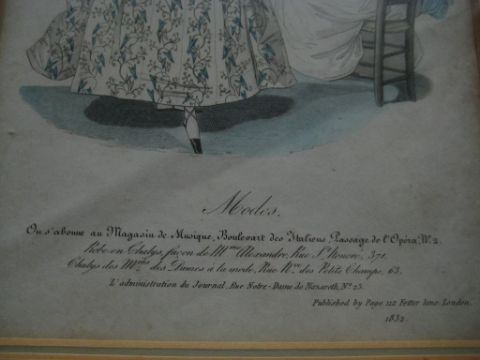 Modes.
On s'abonne au Magasin de Musique, Boulevart des Italiens, Passage de l'Opéra, No. 2.
Robe en Chalys, façon de Mme Alexandre, Rue St. Honoré, 371.
Chalys des Mgins des Dames à la mode, Rue Nve des Petits Champs, 63.
L'administration du Journal, Rue Notre-Dame de Nazareth, No. 25.
Published by Page 112 Fetter lane London.
1832